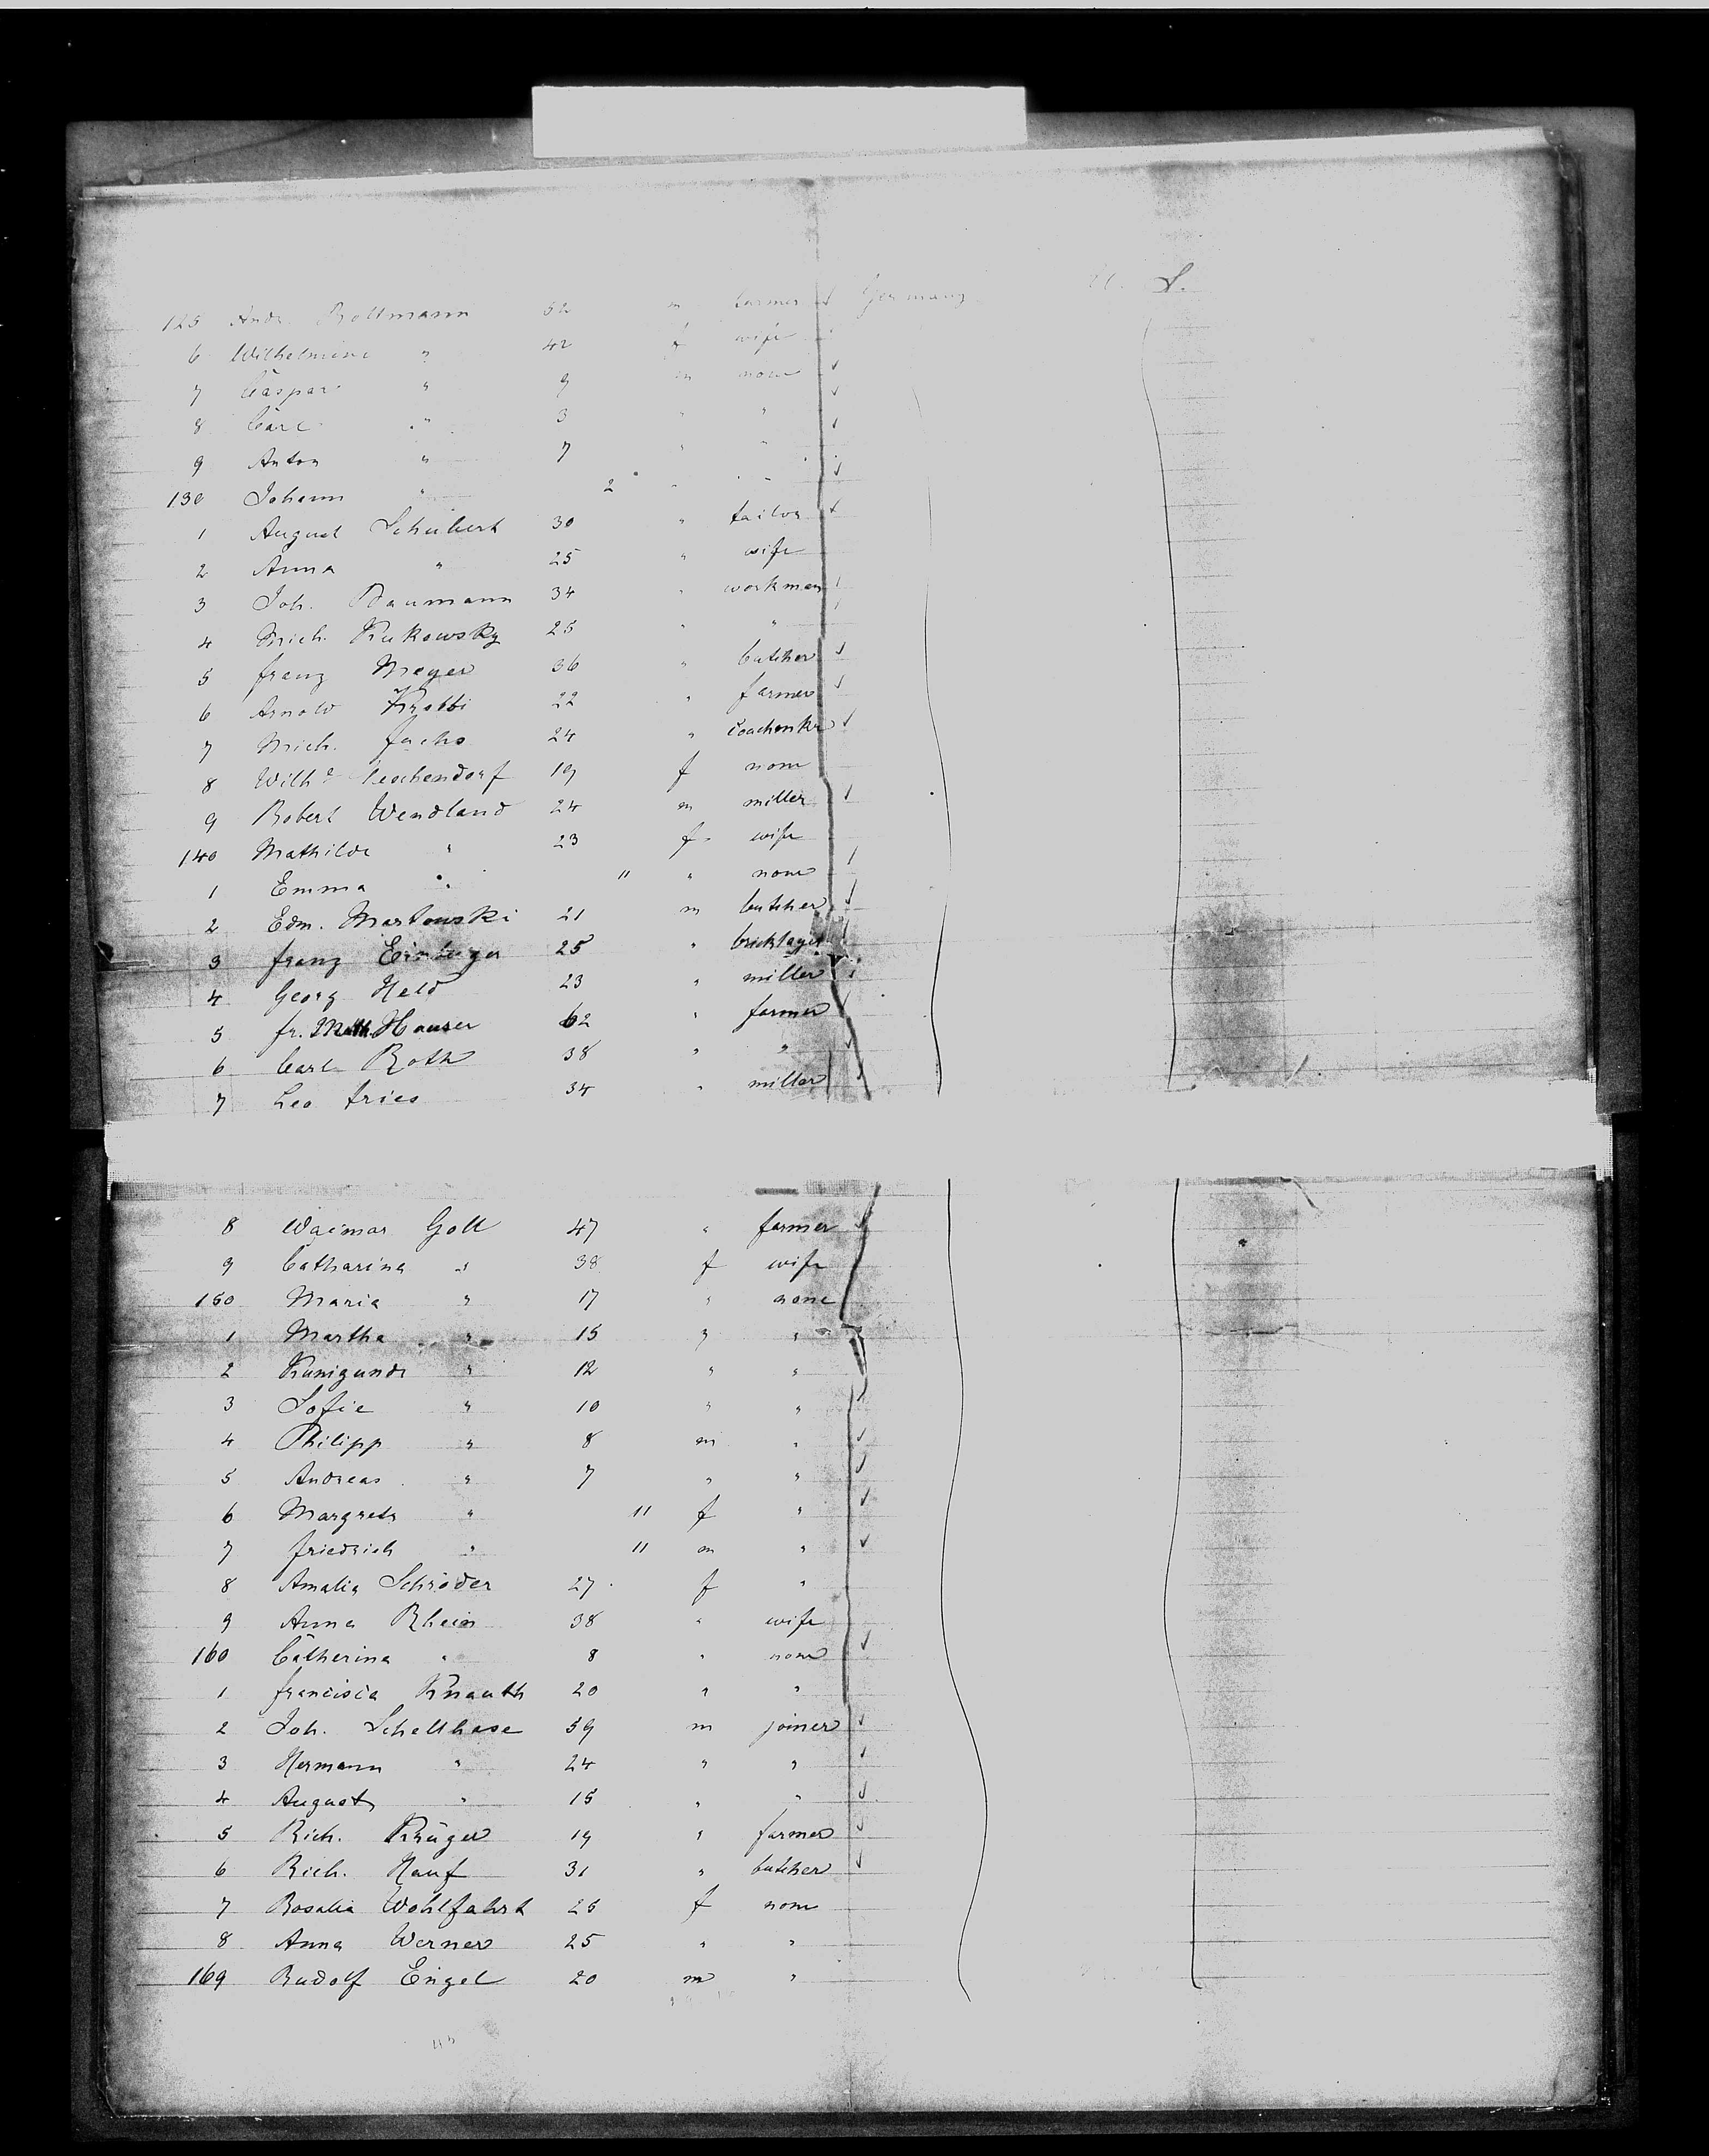 125 Andr. Bollmann 52 m farmer Germany U. S.
6 Wilhelmine " 42 f wife
7 Caspar " 9 m none
8 Carl " 3 " "
9 Anton " 7 " "
130 Johann " 2 " "
1 August Schubert 30 " tailor
2 Anna " 25 " wife
3 Joh. Baumann 34 " workman
4 Mich. Kukowsky 25 " "
5 Franz Meyer 36 " butcher
6 Arnold 22 " farmer
7 Mich. Fuchs 24 "
8 Wilh. 19 f none
9 Robert Wendland 24 m miller
140 Mathilde " 23 f wife
1 Emma " 11 " none
2 Edm. Martowski 21 m butcher
3 Franz 25 " bricklayer
4 Georg Held 23 " miller
5 Fr. Math Hauser 62 " farmer
6 Carl Roth 38 " "
7 Leo Fries 34 " miller
8 Waimar Goll 47 " farmer
9 Catharina " 38 f wife
150 Maria " 17 " none
1 Martha " 15 " "
2 Kunigunde " 12 " "
3 Sofie " 10 " "
4 Philipp " 8 m "
5 Andreas " 7 " "
6 Margreth " 11 f "
7 Friedrich " 11 m "
8 Amalia Schröder 27 f "
9 Anna Rhein 38 " wife
160 Catherina " 8 " none
1 Francisca Knauth 20 " "
2 Joh. Schellhase 59 m joiner
3 Hermann " 24 " "
4 August " 15 " "
5 Rich. Krüger 19 " farmer
6 Rich. Hauf 31 " butcher
7 Rosalia Wohlfahrt 25 f none
8 Anna Werner 25 " "
169 Rudolf Engel 20 m "